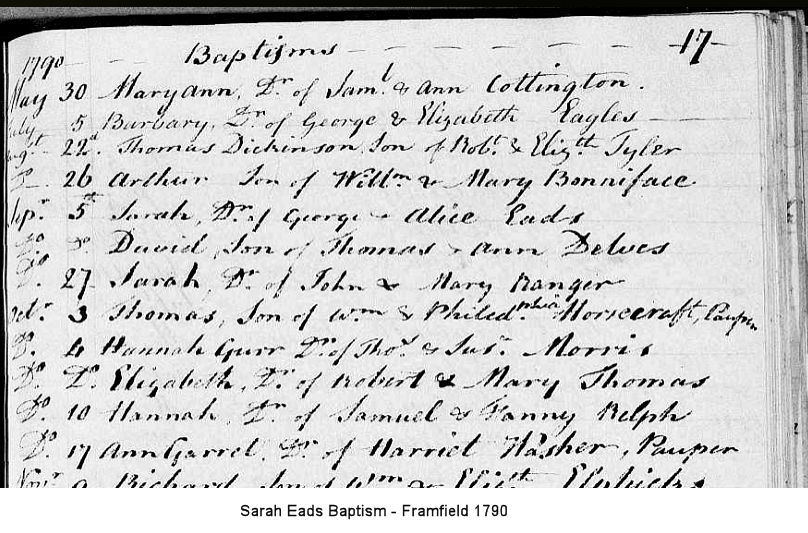 1790 Baptisms — — — — — — 17
May 30 Maryann, Dr. of Saml. & Ann Cottington.
July 5 Barbary, Dr. of George & Elizabeth Eagles
Augst. 22d. Thomas Dickinson, Son of Robt. & Elizth. Tyler
Do. 26 Arthur Son of Willm. & Mary Bonniface
Sepr. 5th Sarah, Dr. of George & Alice Eads
Do. Do. David, Son of Thomas & Ann Delves
Do. 27 Sarah, Dr. of John & Mary Ranger
Octr. 3 Thomas, Son of Wm. & Morecraft, Pauper
Do. 4 Hannah Gurr Dr. of Thos. & Susr. Morris
Do. Do. Elizabeth, Dr. of Robert & Mary Thomas
Do. 10 Hannah, Dr. of Samuel & Fanny Relph
Do. 17 Ann Garret, Dr. of Harriet Hasher, Pauper
Novr. Richard Son of Wm. & Elizth.
Sarah Eads Baptism - Framfield 1790